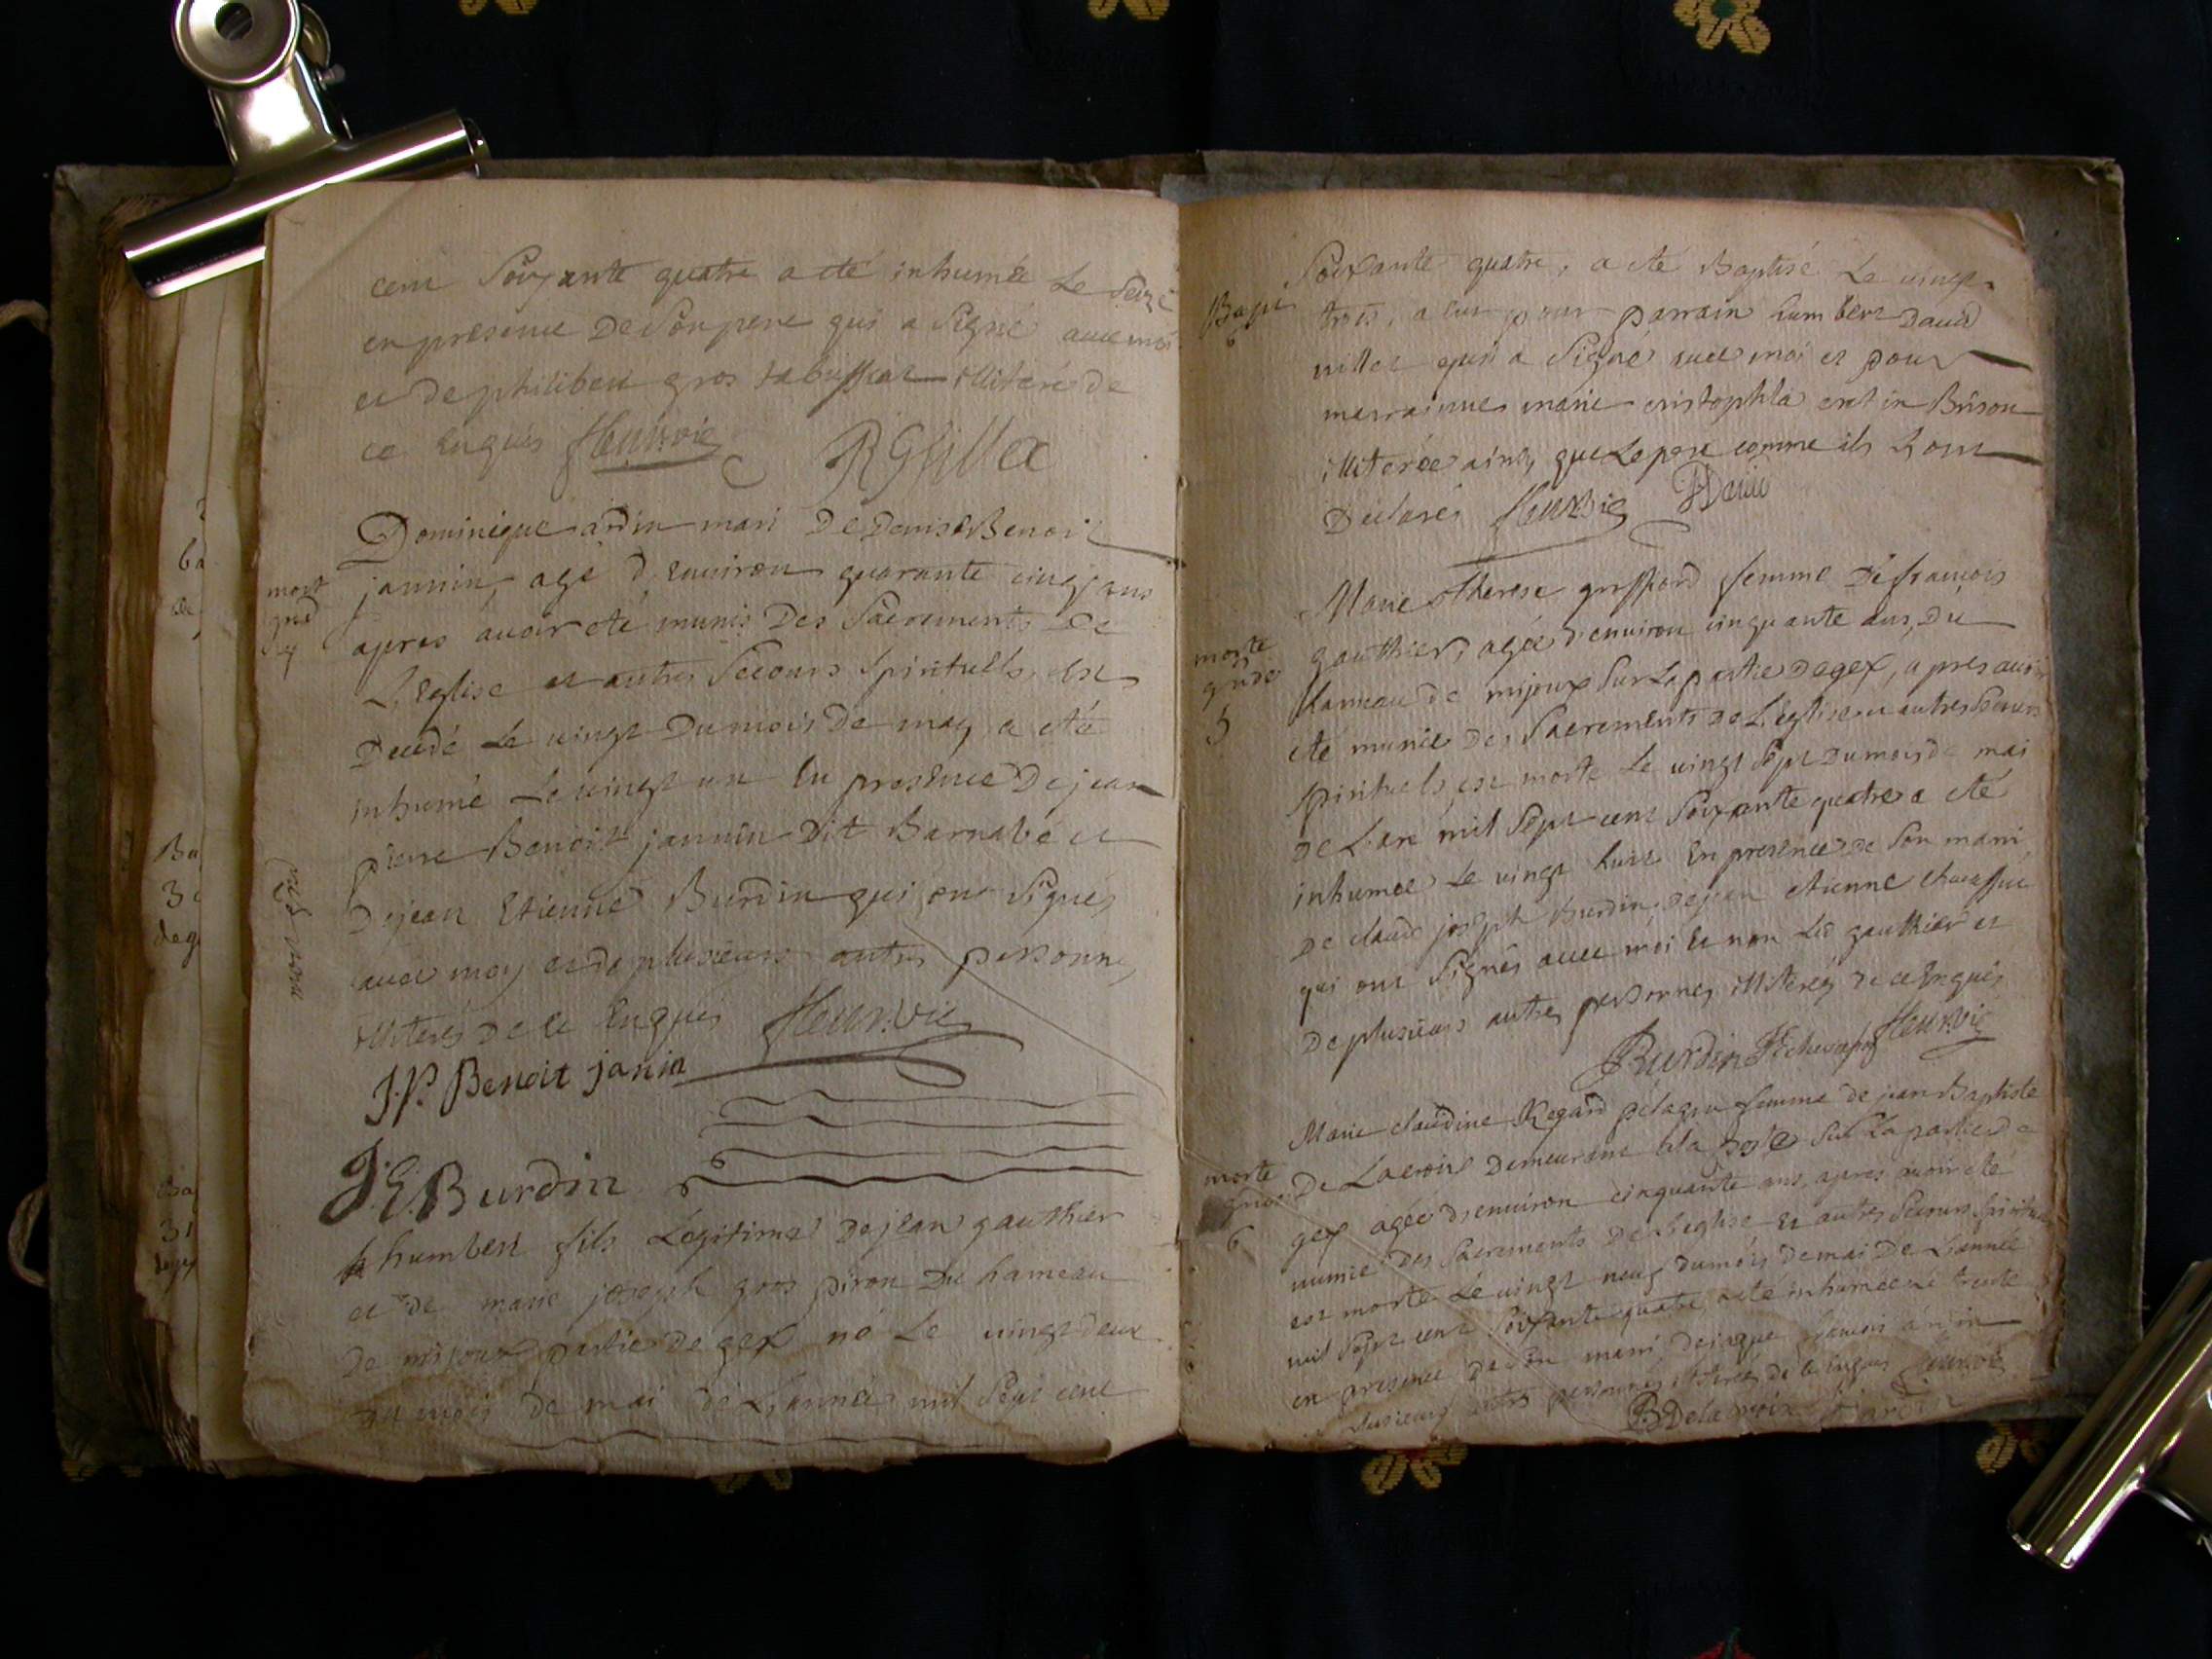 cent Soixante quatre a eté inhumée Le Seize
en presence De Son pere qui a Signé avec moi
et de philibert gros illiteré de
ce Enquis
Dominique ardin mari De Denise Benoit
mort
grd
jannin, agé d'Environ quarante cinq ans
apres avoir eté munis Des Sacrements De
L'Eglise et autres Secours Spirituels, est
Decedé Le vingt Du mois De may a eté
inhumé Le vingt un En presence De jean
pierre Benoit jannin Dit Barnabé et
Dejean Etienne Burdin qui ont Signés
avec moy et de plusieurs autres personnes
illiterés De ce Enquis
J.P. Benoit janin
J.E. Burdin
humbert fils Légitime De jean gauthier
et de marie joseph gros piron Du hameau
De mijoux partie De gex né Le vingt deux
du mois de mai de L'année mil Sept cent
Soixante quatre, a eté Baptisé Le vingt
Bapt
6
trois, a eu pour parrain humbert David
millet qui a Signé avec moi et pour
marrainne marie cristophla Brison
illiterée ainsy que Le pere comme ils L'ont
Declarés
Marie Therese femme De francois
morte
grde
5
gauthier, agée d'environ cinquante ans, Du
hameau de mijoux Sur La partie De gex, apres avoir
eté munie Des Sacrements De L'Eglise et autres Secours
Spirituels, est morte Le vingt Sept Du mois de mai
De L'an mil Sept cent Soixante quatre a eté
inhumée Le vingt huit En presence de Son marri
De claude joseph Burdin, de jean etienne
qui ont Signés avec moi et non Led gauthier et
De plusieurs autres personnes illiterés De ce Enquis
Burdin
Marie claudine Regard femme de jean Baptiste
morte
grde
6
De Lacroix Demeurant à la Sur La partie de
gex agée d'environ cinquante ans, apres avoir eté
munie Des Sacrements De L'eglise et autres Secours Spirituels
est morte Le vingt neuf du mois De mai De L'année
mil Sept cent Soixante quatre a eté inhumée Le trente
en presence de Son marri, de
plusieurs autres personnes illiterés de ce Enquis